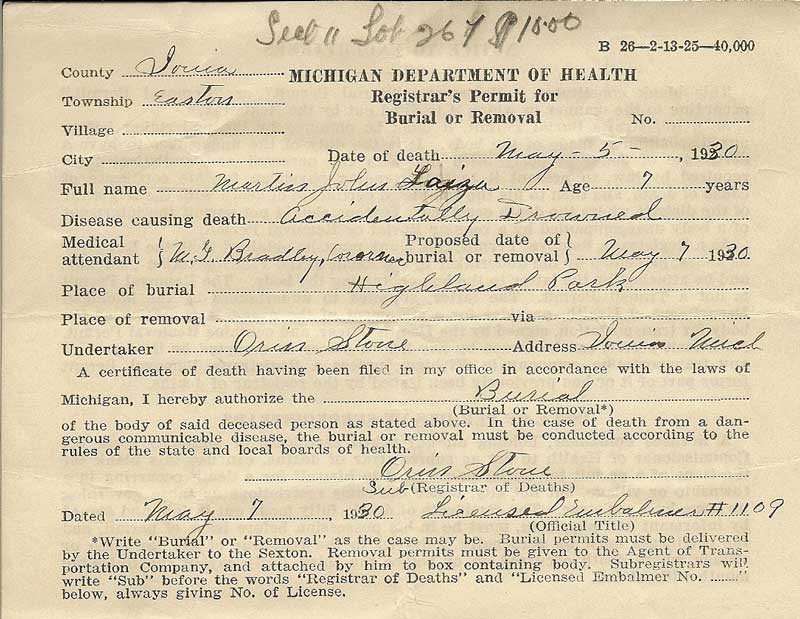 Sect 11 Lot 267 $10.00
B 26—2-13-25—40,000
County Ionia
MICHIGAN DEPARTMENT OF HEALTH
Township Easton
Registrar's Permit for
Village
Burial or Removal No.
City
Date of death May - 5 - , 1930
Full name Martin John Age 7 years
Disease causing death Accidentally Drowned
Medical attendant M. F. Bradley, Coroner Proposed date of burial or removal May 7 1930
Place of burial Highland Park
Place of removal via
Undertaker Orin Stone Address Ionia Mich
A certificate of death having been filed in my office in accordance with the laws of
Michigan, I hereby authorize the Burial
(Burial or Removal*)
of the body of said deceased person as stated above. In the case of death from a dan-
gerous communicable disease, the burial or removal must be conducted according to the
rules of the state and local boards of health.
Orin Stone
Sub (Registrar of Deaths)
Dated May 7 1930 Licensed Embalmer # 1109
(Official Title)
*Write "Burial" or "Removal" as the case may be. Burial permits must be delivered
by the Undertaker to the Sexton. Removal permits must be given to the Agent of Trans-
portation Company, and attached by him to box containing body. Subregistrars will
write "Sub" before the words "Registrar of Deaths" and "Licensed Embalmer No. ........"
below, always giving No. of License.